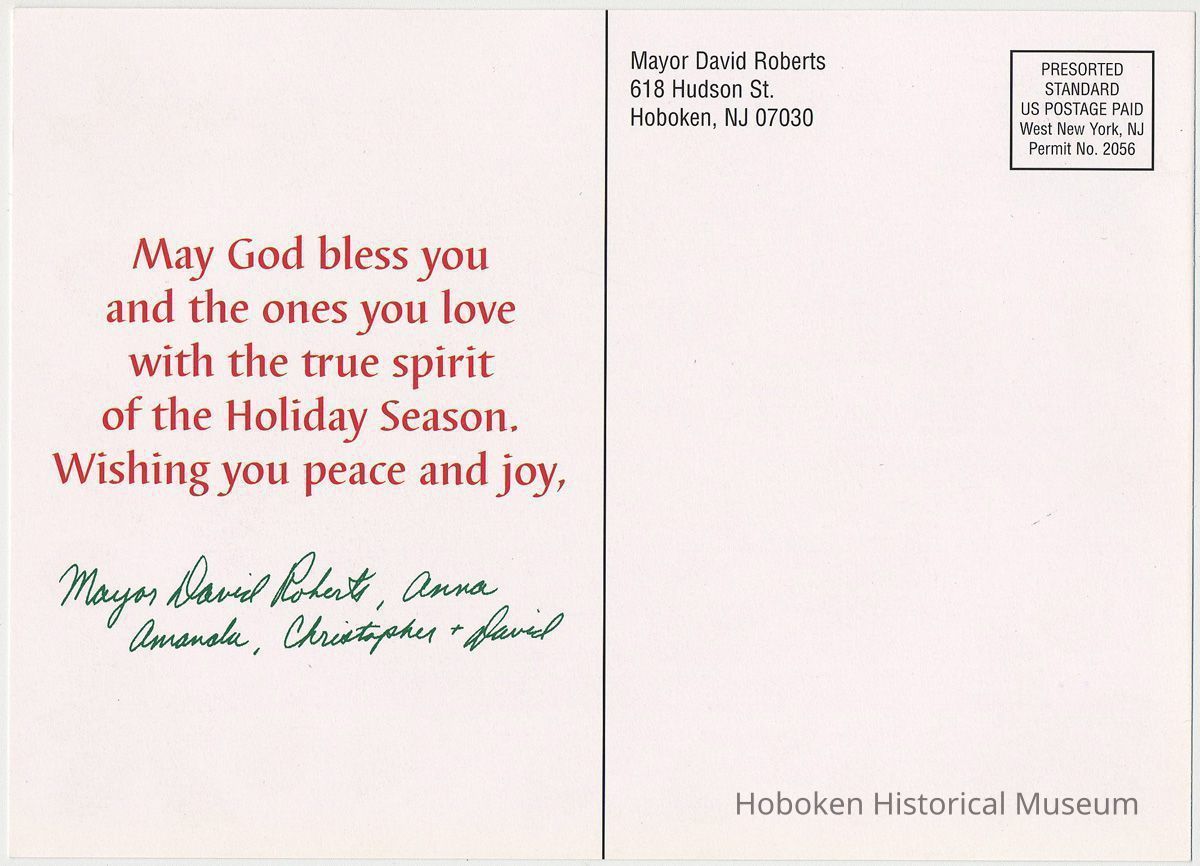 May God bless you
and the ones you love
with the true spirit
of the Holiday Season.
Wishing you peace and joy,
Mayor David Roberts, Anna
Amanda, Christopher + David
Mayor David Roberts
618 Hudson St.
Hoboken, NJ 07030
PRESORTED
STANDARD
US POSTAGE PAID
West New York, NJ
Permit No. 2056
Hoboken Historical Museum